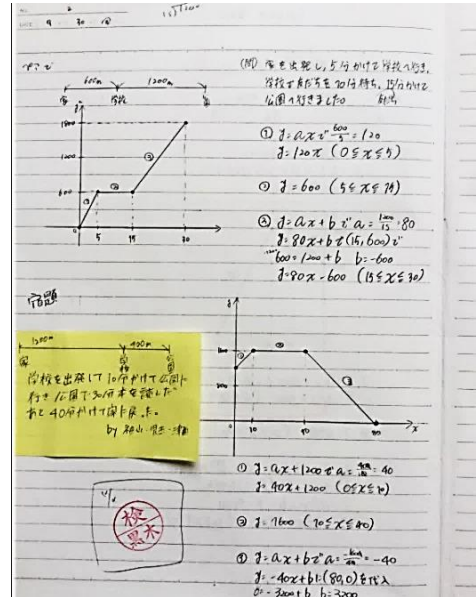 9 30
600m 1200m
家 学校
y
1800
1200
600
0 5 15 30
①
②
③
(問) 家を出発し、5分かけて学校へ行き、
学校で友だちを10分待ち、15分かけて
公園へ行きました。
① y=axで 600/5=120
y=120x (0≦x≦5)
② y=600 (5≦x≦15)
③ y=ax+bで a=1200/15=80
y=80x+bで(15,600)で
600=1200+b b=-600
y=80x-600 (15≦x≦30)
宿題
1200m 400m
家 学校 公園
学校を出発して10分かけて公園に
行き公園で30分本を読んだ
あと40分かけて家に戻った。
by
y
x
10 40 80
①
②
③
① y=ax+1200で a=400/10=40
y=40x+1200 (0≦x≦10)
② y=1600 (10≦x≦40)
③ y=ax+bで a=-1600/40=-40
y=-40x+bに(80,0)を代入
0=-3200+b b=3200
検
黒木